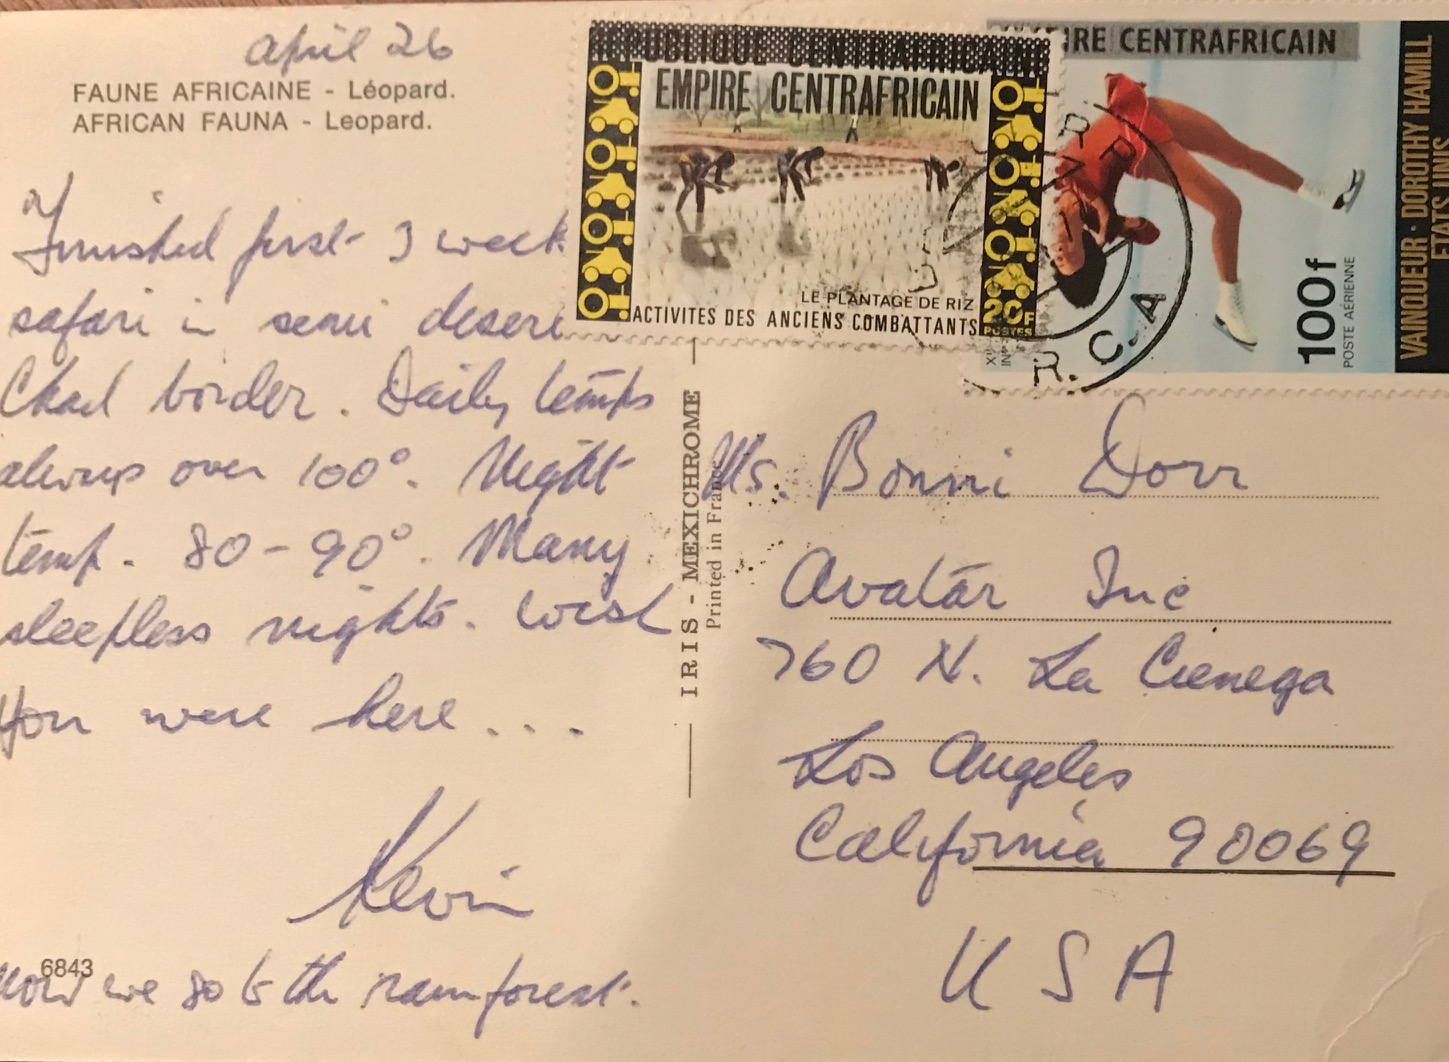 april 26
FAUNE AFRICAINE - Léopard.
AFRICAN FAUNA - Leopard.
Finished first 3 week
safari in semi desert
Chad border. Daily temps
always over 100°. Night
temp. 80-90°. Many
sleepless nights. Wish
You were here...
Kevin
6843
Now we go to the rainforest.
IRIS - MEXICHROME
Printed in France
REPUBLIQUE CENTRAFRICAINE
EMPIRE CENTRAFRICAIN
LE PLANTAGE DE RIZ
ACTIVITES DES ANCIENS COMBATTANTS
20F
POSTES
IRE CENTRAFRICAIN
VAINQUEUR · DOROTHY HAMILL
ETATS UNIS
100f
POSTE AÉRIENNE
R.C.A
Ms. Bonni Dorr
Avatar Inc
760 N. La Cienega
Los Angeles
California 90069
USA